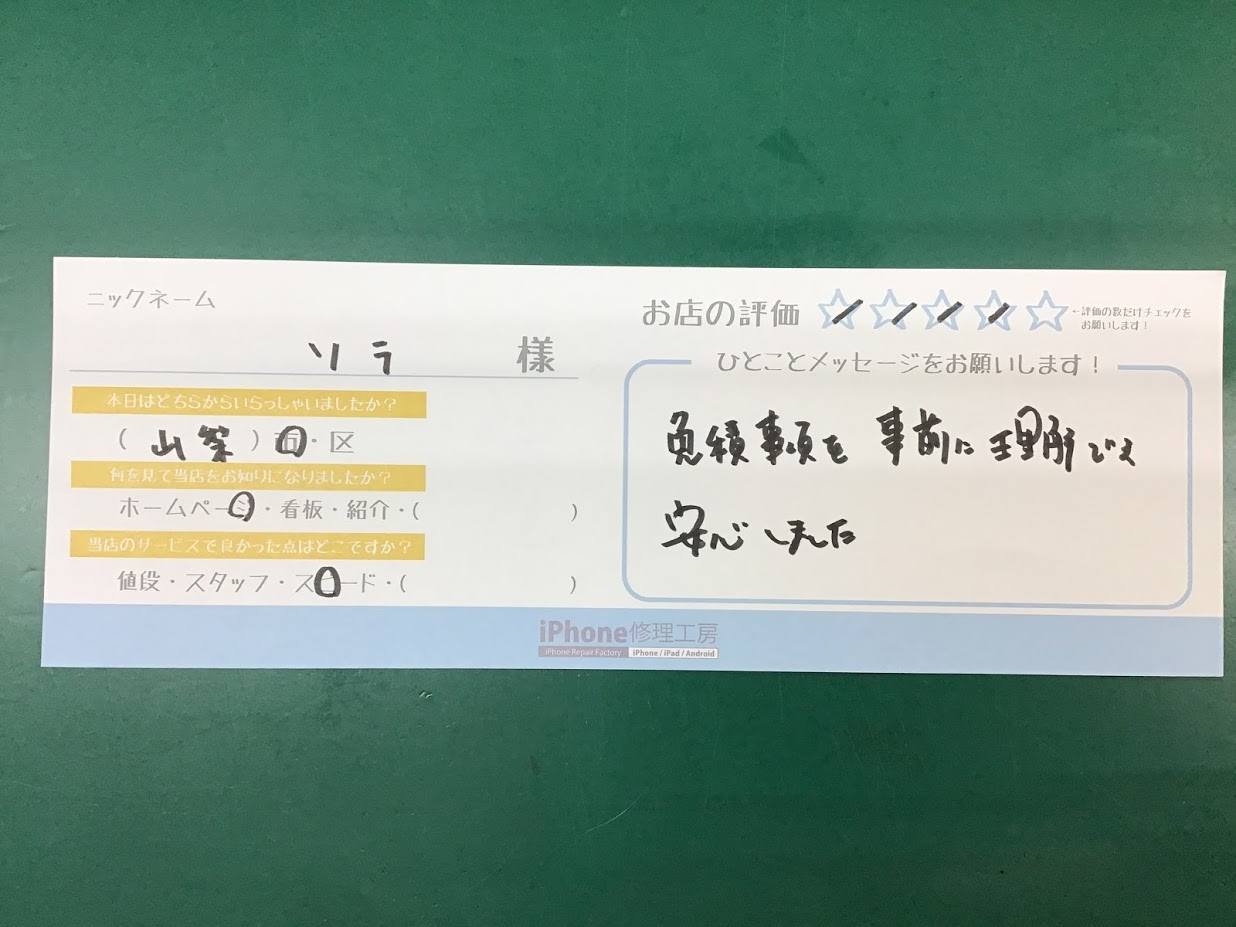 ニックネーム
ソラ 様
本日はどちらからいらっしゃいましたか？
( 山 ) 市・区
何を見て当店をお知りになりましたか？
ホームページ・看板・紹介・( )
当店のサービスで良かった点はどこですか？
値段・スタッフ・スピード・( )
お店の評価 ☆☆☆☆☆ ←評価の数だけチェックを
お願いします！
ひとことメッセージをお願いします！
見積事項を 事前に理解でき
安心しました
iPhone修理工房
iPhone Repair Factory iPhone / iPad / Android